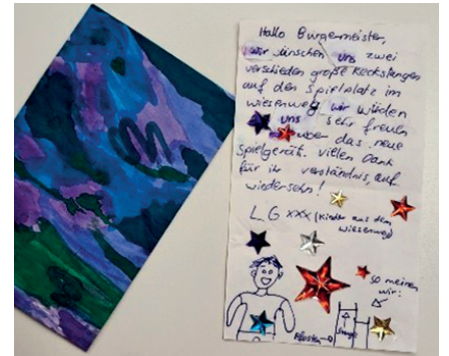 Hallo Bürgermeister,
wir wünschen uns zwei
verschieden große Reckstangen
auf den Spielplatz im
wiesenweg wir würden
uns sehr freuen
über das neue
Spielgerät. Vielen Dank
für ihr verständnis, auf
wiedersehn!
L.G xxx (Kinder aus dem
Wiesenweg)
so meinen
wir:
Pfosten
Stange